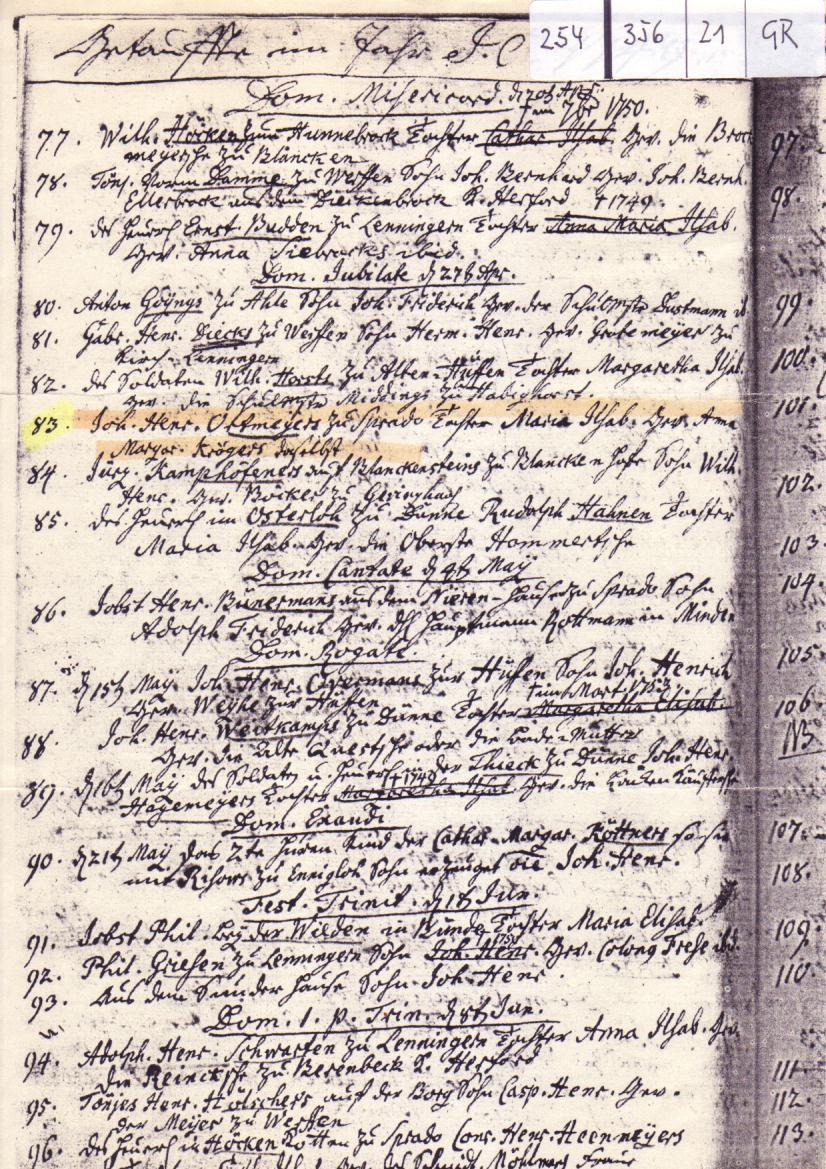 254 356 21 GR
Getauffte im Jahr J. C
Dom. Misericord. d 20t Apr.
† im 1750.
77. Wilh. Höcken zum Hunnebrock Tochter Cathar. Ilsab. Gev. die Brock
meyersche zu Blancken
78. Tönj. Vorm Damme zu Werffen Sohn Joh. Bernhard Gev. Joh. Bernh.
Ellerbrock aus dem Dieckenbrock K. Herford † 1749.
79. des Heuerl Ernst Budden zu Lenningern Tochter Anna Maria Ilsab.
Gev. Anna Siebrocks ibid.
Dom. Jubilate d 27t Apr.
80. Anton Goyngs zu Ahle Sohn Joh. Friderich Gev. der Schulmstr Dustmann
81. Gabr. Henr. Diecks zu Werffen Sohn Herm. Henr. Gev. Grotemeyer zu
Kirch-Lenningern
82. des Soldaten Wilh. Horsts zu Alten-Hüffen Tochter Margaretha Ilsab.
Gev. die Schulmstr Middings zu Habighorst.
83. Joh. Henr. Ottmeyers zu Sprado Tochter Maria Ilsab. Gev. Anna
Margar. Krögers daselbst
84. Jürg. Kamphöfeners auf Blanckensteins zu Blancken Hofe Sohn Wilh.
Henr. Gev. Böcker zu
85. des Heuerl im Osterloh zu Dünne Rudolph Hahnen Tochter
Maria Ilsab. Gev. die Oberste Hommertsche
Dom. Cantate d 4t May
86. Jobst Henr. Bünermans aus dem Nieren-Hause zu Sprado Sohn
Adolph Friderich Gev. Hauptmann Rottmann in Minden
Dom. Rogate
87. d 15t May Joh. Henr. Overmans zur Hüffen Sohn Joh. Henrich
Gev. Weyhe zur Hüffen
88 Joh. Henr. Weitkamps zu Dünne Tochter Margaretha Elisab.
Gev. die alte oder die Bade-Mutter
89. d 16t May des Soldaten u. Heuerl in der Thieck zu Dünne Joh. Henr.
Hagemeyers Tochter Margaretha Ilsab. Gev. die
† 1749
Dom. Exaudi
90. d 21t May das 2te Huren Kind der Cathar. Margar. Köttners so sie
mit Rihows zu Ennigloh Sohn erzeuget Joh. Henr.
Fest. Trinit. d 1t Jun.
91. Jobst Phil. bey der Wieden in Bünde Tochter Maria Elisab.
92. Phil. Griesen zu Lenningern Sohn Joh. Henr. Gev. Colong Frese
93. Aus dem Sunder Hause Sohn Joh. Henr.
Dom. 1. p. Trin. d 8t Jun.
94. Adolph. Henr. Schwarten zu Lenningern Tochter Anna Ilsab. Gev.
die Reincksche zu Besenbeck K. Herford
95. Tönjes Henr. Hölschers auf der Borg Sohn Casp. Henr. Gev.
der Meyer zu Werffen
96. des Heuerl in Höcken Kotten zu Sprado Conr. Henr. Heenmeyers
97.
98.
99.
100.
101.
102.
103.
104.
105.
106.
NB
107.
108.
109.
110.
111.
112.
113.